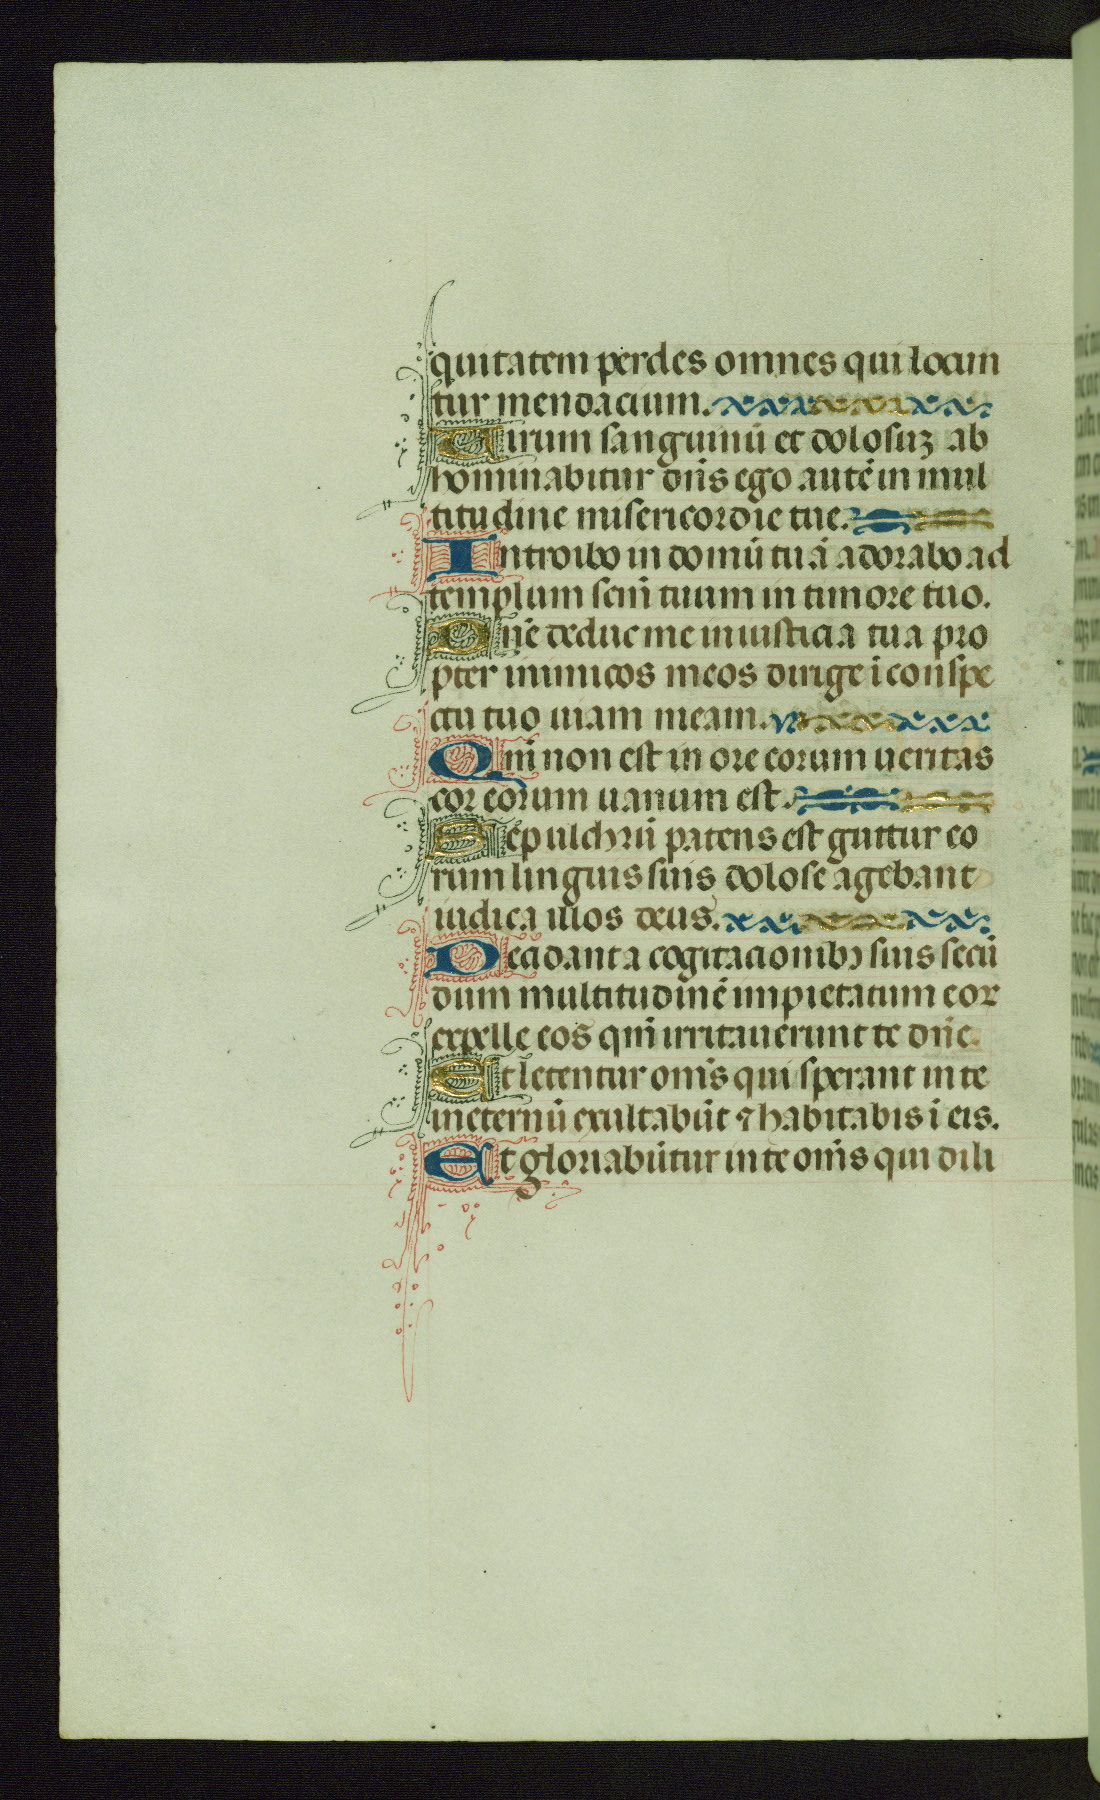 quitatem perdes omnes qui locun
tur mendacium.
Uirum sanguinū et dolosuꝫ ab
hominabitur dn̄s ego autē in mul
titudine misericordie tue.
Introibo in domū tuā adorabo ad
templum scm̄ tuum in timore tuo.
Dn̄e deduc me in iusticia tua pro
pter inimicos meos dirige ī conspe
ctu tuo uiam meam.
Qm̄ non est in ore eorum ueritas
cor eorum uanum est.
Sepulchrū patens est guttur eo
rum linguis suis dolose agebant
iudica illos deus.
Decidant a cogitacionibꝫ suis secū
dum multitudinē impietatum eor
expelle eos qm̄ irritauerunt te dn̄e.
Et letentur om̄s qui sperant in te
in eternū exultabūt ⁊ habitabis ī eis.
Et gloriabūtur in te om̄s qui dili